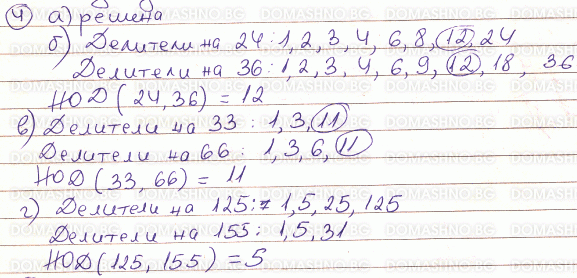 4) а) решена
б) Делители на 24: 1, 2, 3, 4, 6, 8, 12, 24
Делители на 36: 1, 2, 3, 4, 6, 9, 12, 18, 36
НОД (24, 36) = 12
в) Делители на 33: 1, 3, 11
Делители на 66: 1, 3, 6, 11
НОД (33, 66) = 11
г) Делители на 125: 1, 5, 25, 125
Делители на 155: 1, 5, 31
НОД (125, 155) = 5